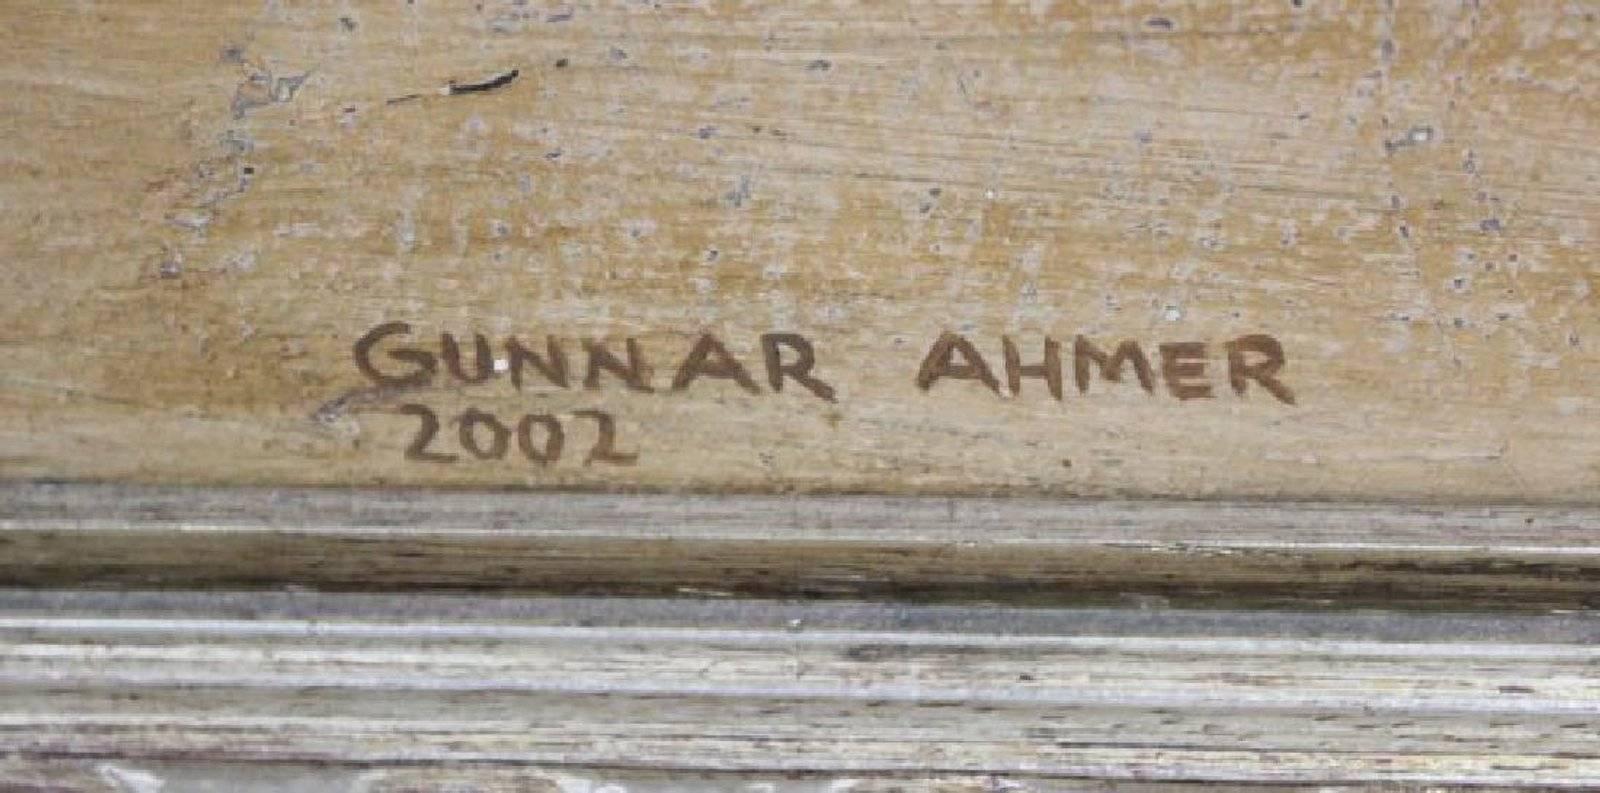 GUNNAR AHMER
2002